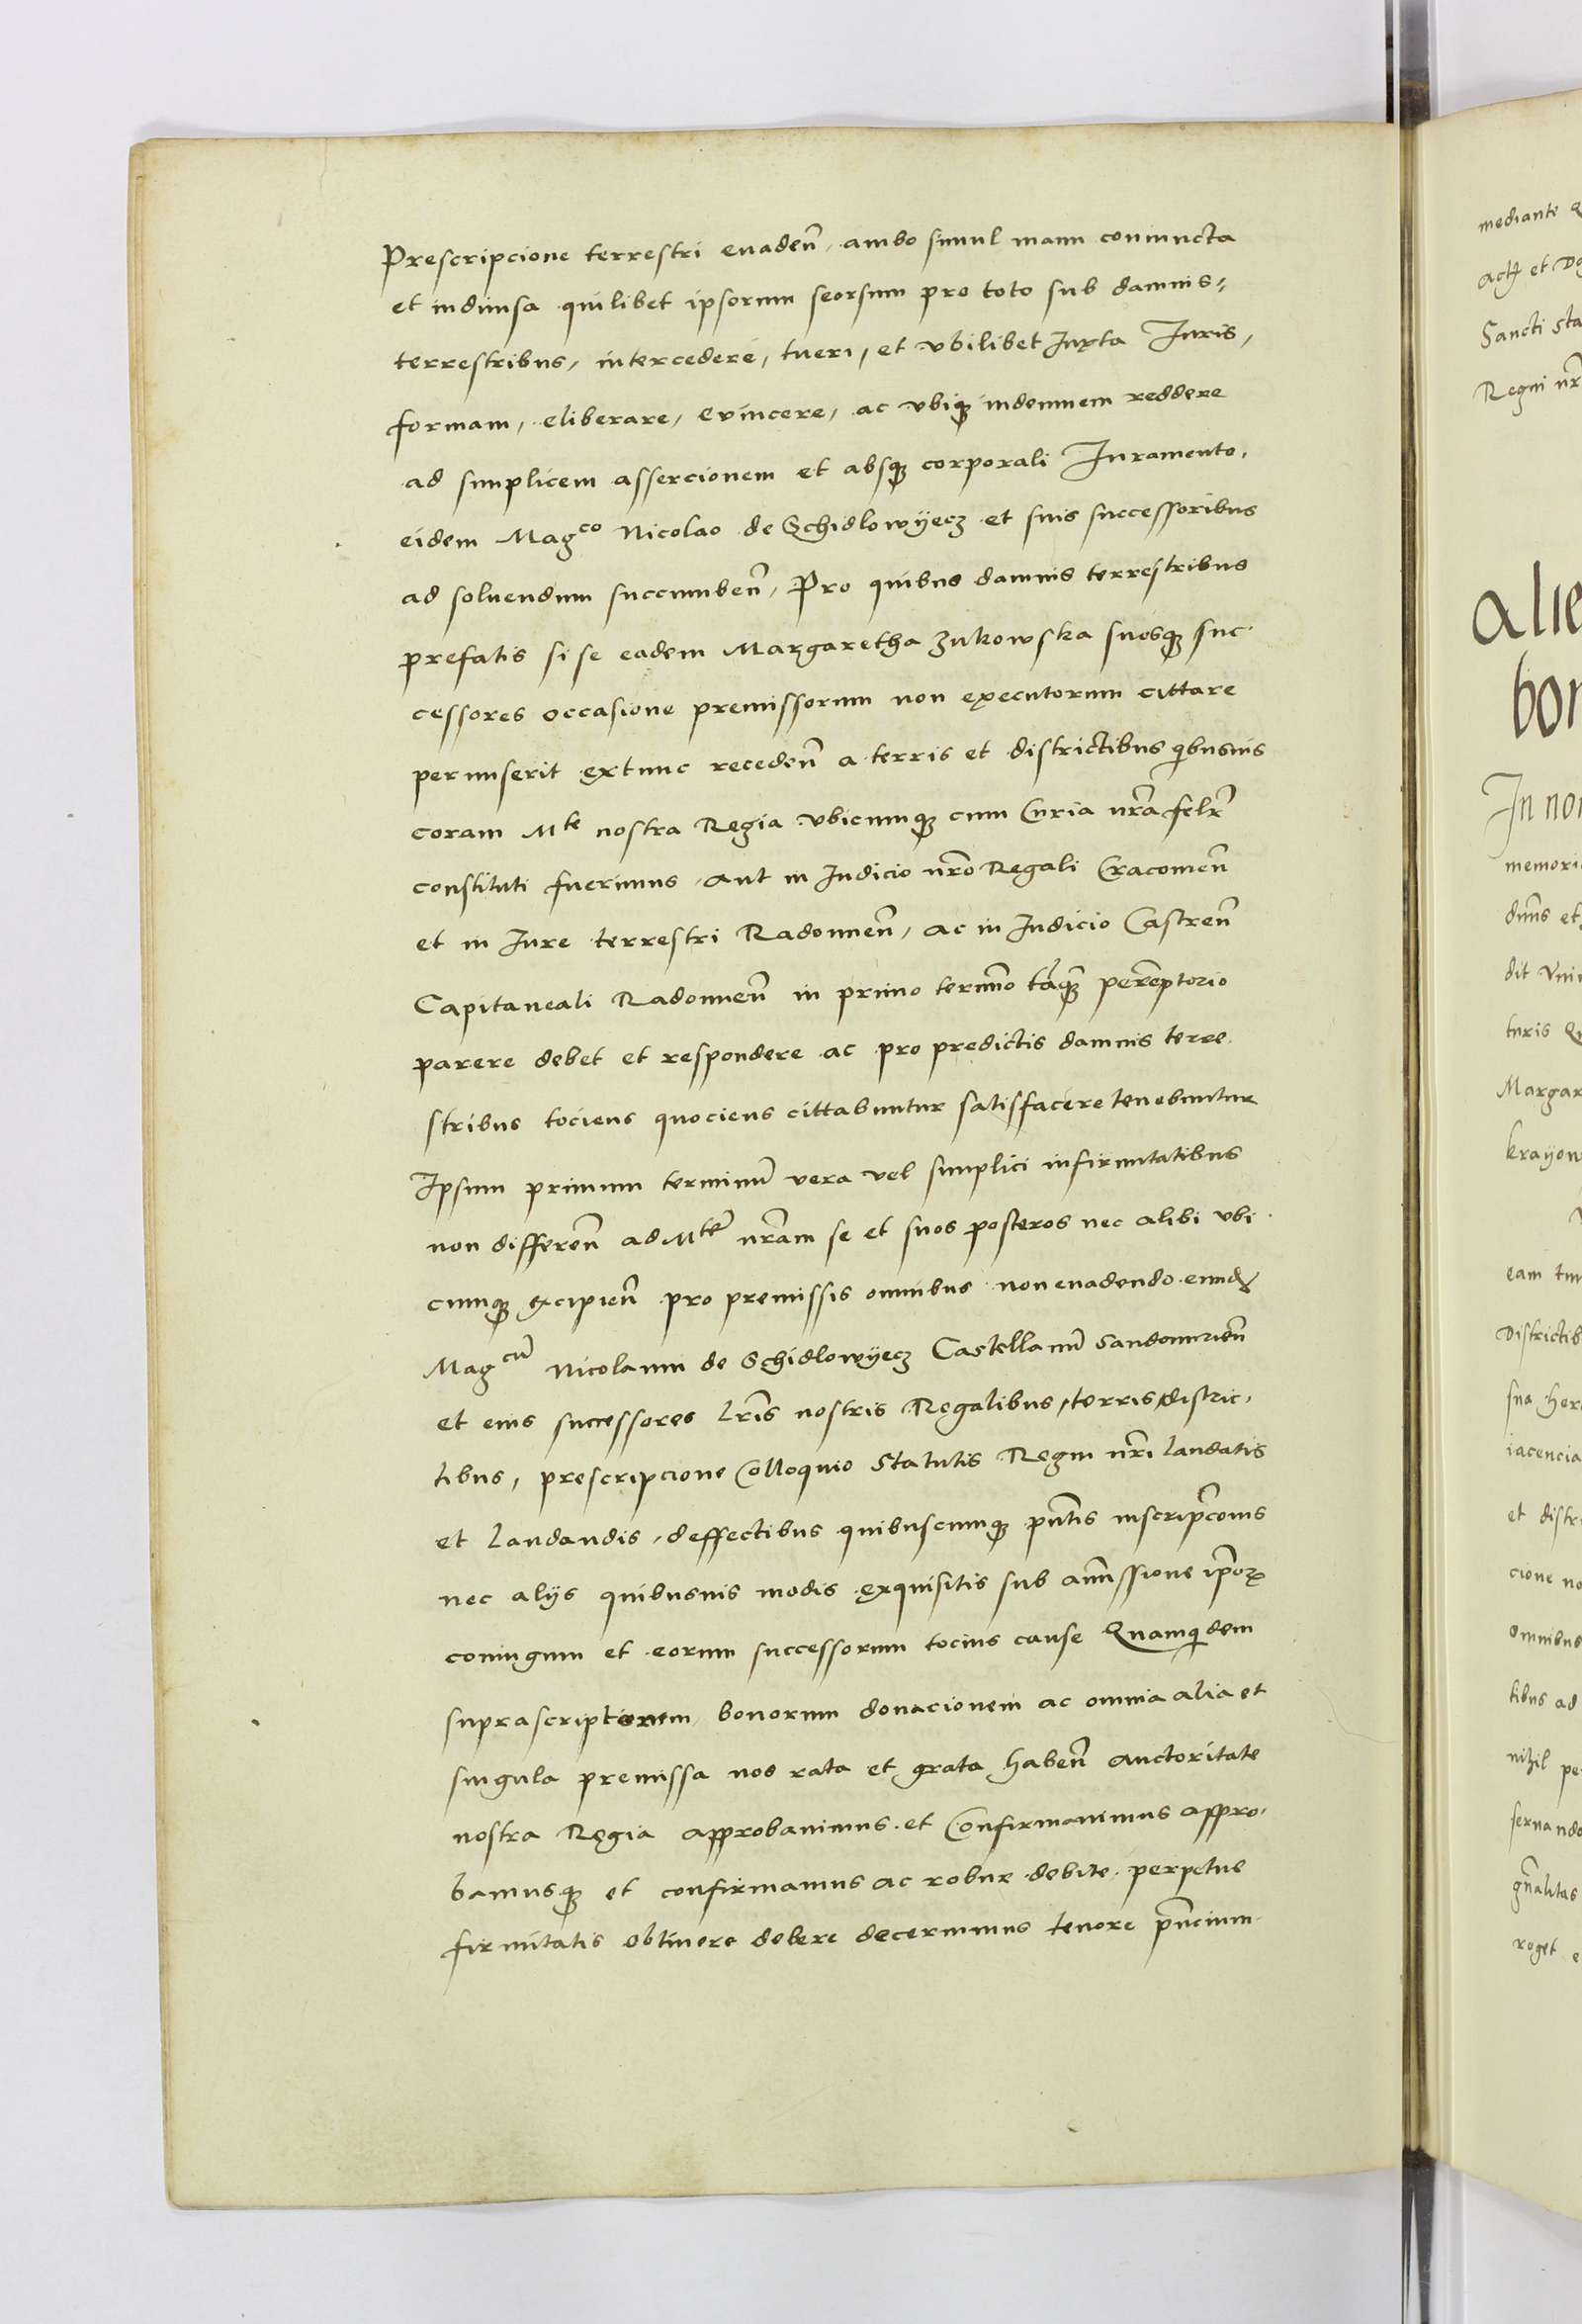 Prescripcione terrestri evadeñ, ambo simul manu coniuncta
et indiuisa quilibet ipsorum seorsum pro toto sub damnis,
terrestribus, intercedere, tueri, et vbilibet Iuxta Iuris,
formam, eliberare, Evincere, ac vbiqꝫ indemnem reddere
ad simplicem assercionem et absqꝫ corporali Iuramento,
eidem Magco Nicolao de Schidlowÿecz et suis successoribus
ad soluendum succumbeñ, Pro quibus damnis terrestribus
prefatis si se eadem Margaretha Zukowska suosqꝫ suc-
cessores occasione premissorum non executorum cittare
permiserit extunc recedeñ a terris et districtibus qibusuis
coram Mte nostra Regia vbicunqꝫ cum Curia nrã felr̃
constituti fuerimus, aut in Iudicio nrõ Regali Cracouieñ
et in Iure terrestri Radomieñ, ac in Iudicio Castreñ
Capitaneali Radomieñ in primo termĩo tãqꝫ perẽptorio
parere debet et respondere ac pro predictis damnis terre-
stribus tociens quociens cittabuntur satisfacere tenebuntur
Ipsum primum terminũ vera vel simplici infirmitatibus
non differeñ ad Mtẽ nrãm se et suos posteros nec alibi vbi-
cunqꝫ excipieñ pro premissis omnibus non evadendo eund
Magcũ Nicolaum de Schidlowÿecz Castellanũ Sandomirieñ
et eius successores lrĩs nostris Regalibus, terris, distric-
tibus, prescripcione Colloquio Statutis Regni nrĩ laudatis
et laudandis, deffectibus quibuscunqꝫ pñtis inscripcõnis
nec alijs quibusuis modis exquisitis sub amĩssione ipõꝝ
coniugum et eorum successorum tocius cause Quamqidem
suprascriptionem bonorum donacionem ac omnia alia et
singula premissa nos rata et grata habeñ auctoritate
nostra Regia approbauimus et Confirmauimus appro-
bamusqꝫ et confirmamus ac robur debite perpetue
firmitatis obtinere debere decernimus tenore pñcium
mediante
et
Sancti Sta
Regni nr̃
alie
bon
In nom
memori
dñs et
dit Vni
turis
Margar
krayow
eam
Districtib
sua her
iacencia
et distr
cione no
omnibus
tibus ad
nihil pe
seruando
gñalitas
roget e